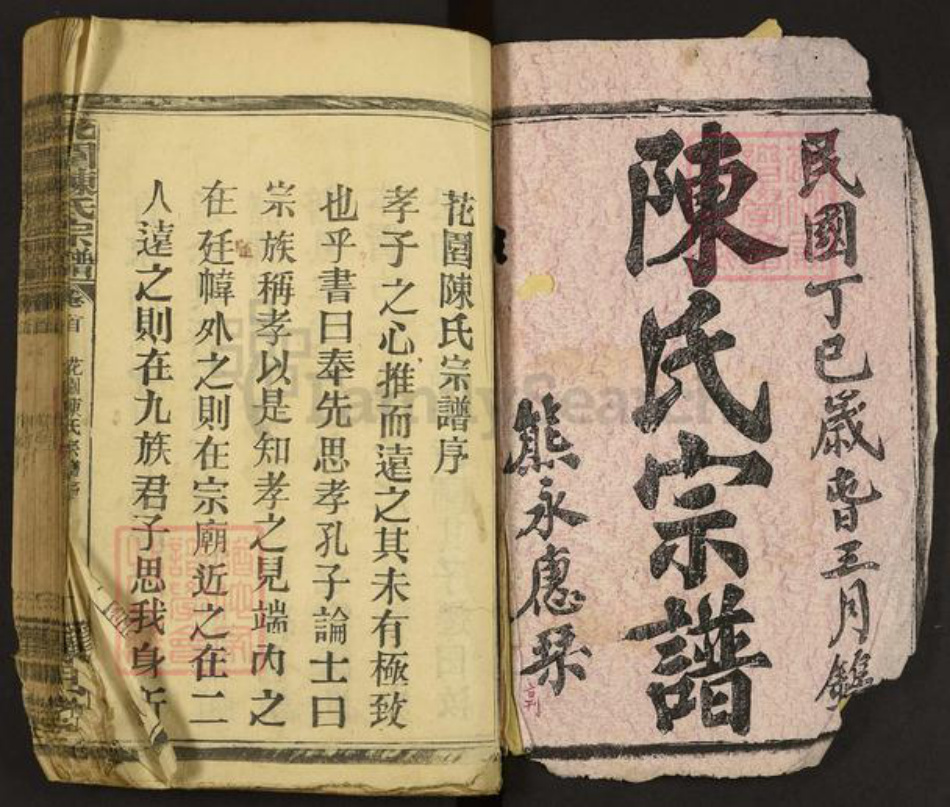 民國丁巳歲春三月鐫
陳氏宗譜
熊永應琹
花園陳氏宗譜序
孝子之心推而遠之其未有極致
也乎書曰奉先思孝孔子論士曰
宗族稱孝以是知孝之見端內之
在廷幃外之則在宗廟近之在二
人遠之則在九族君子思我身所
花園陳氏宗譜 卷首 花園陳氏宗譜序
FamilySearch